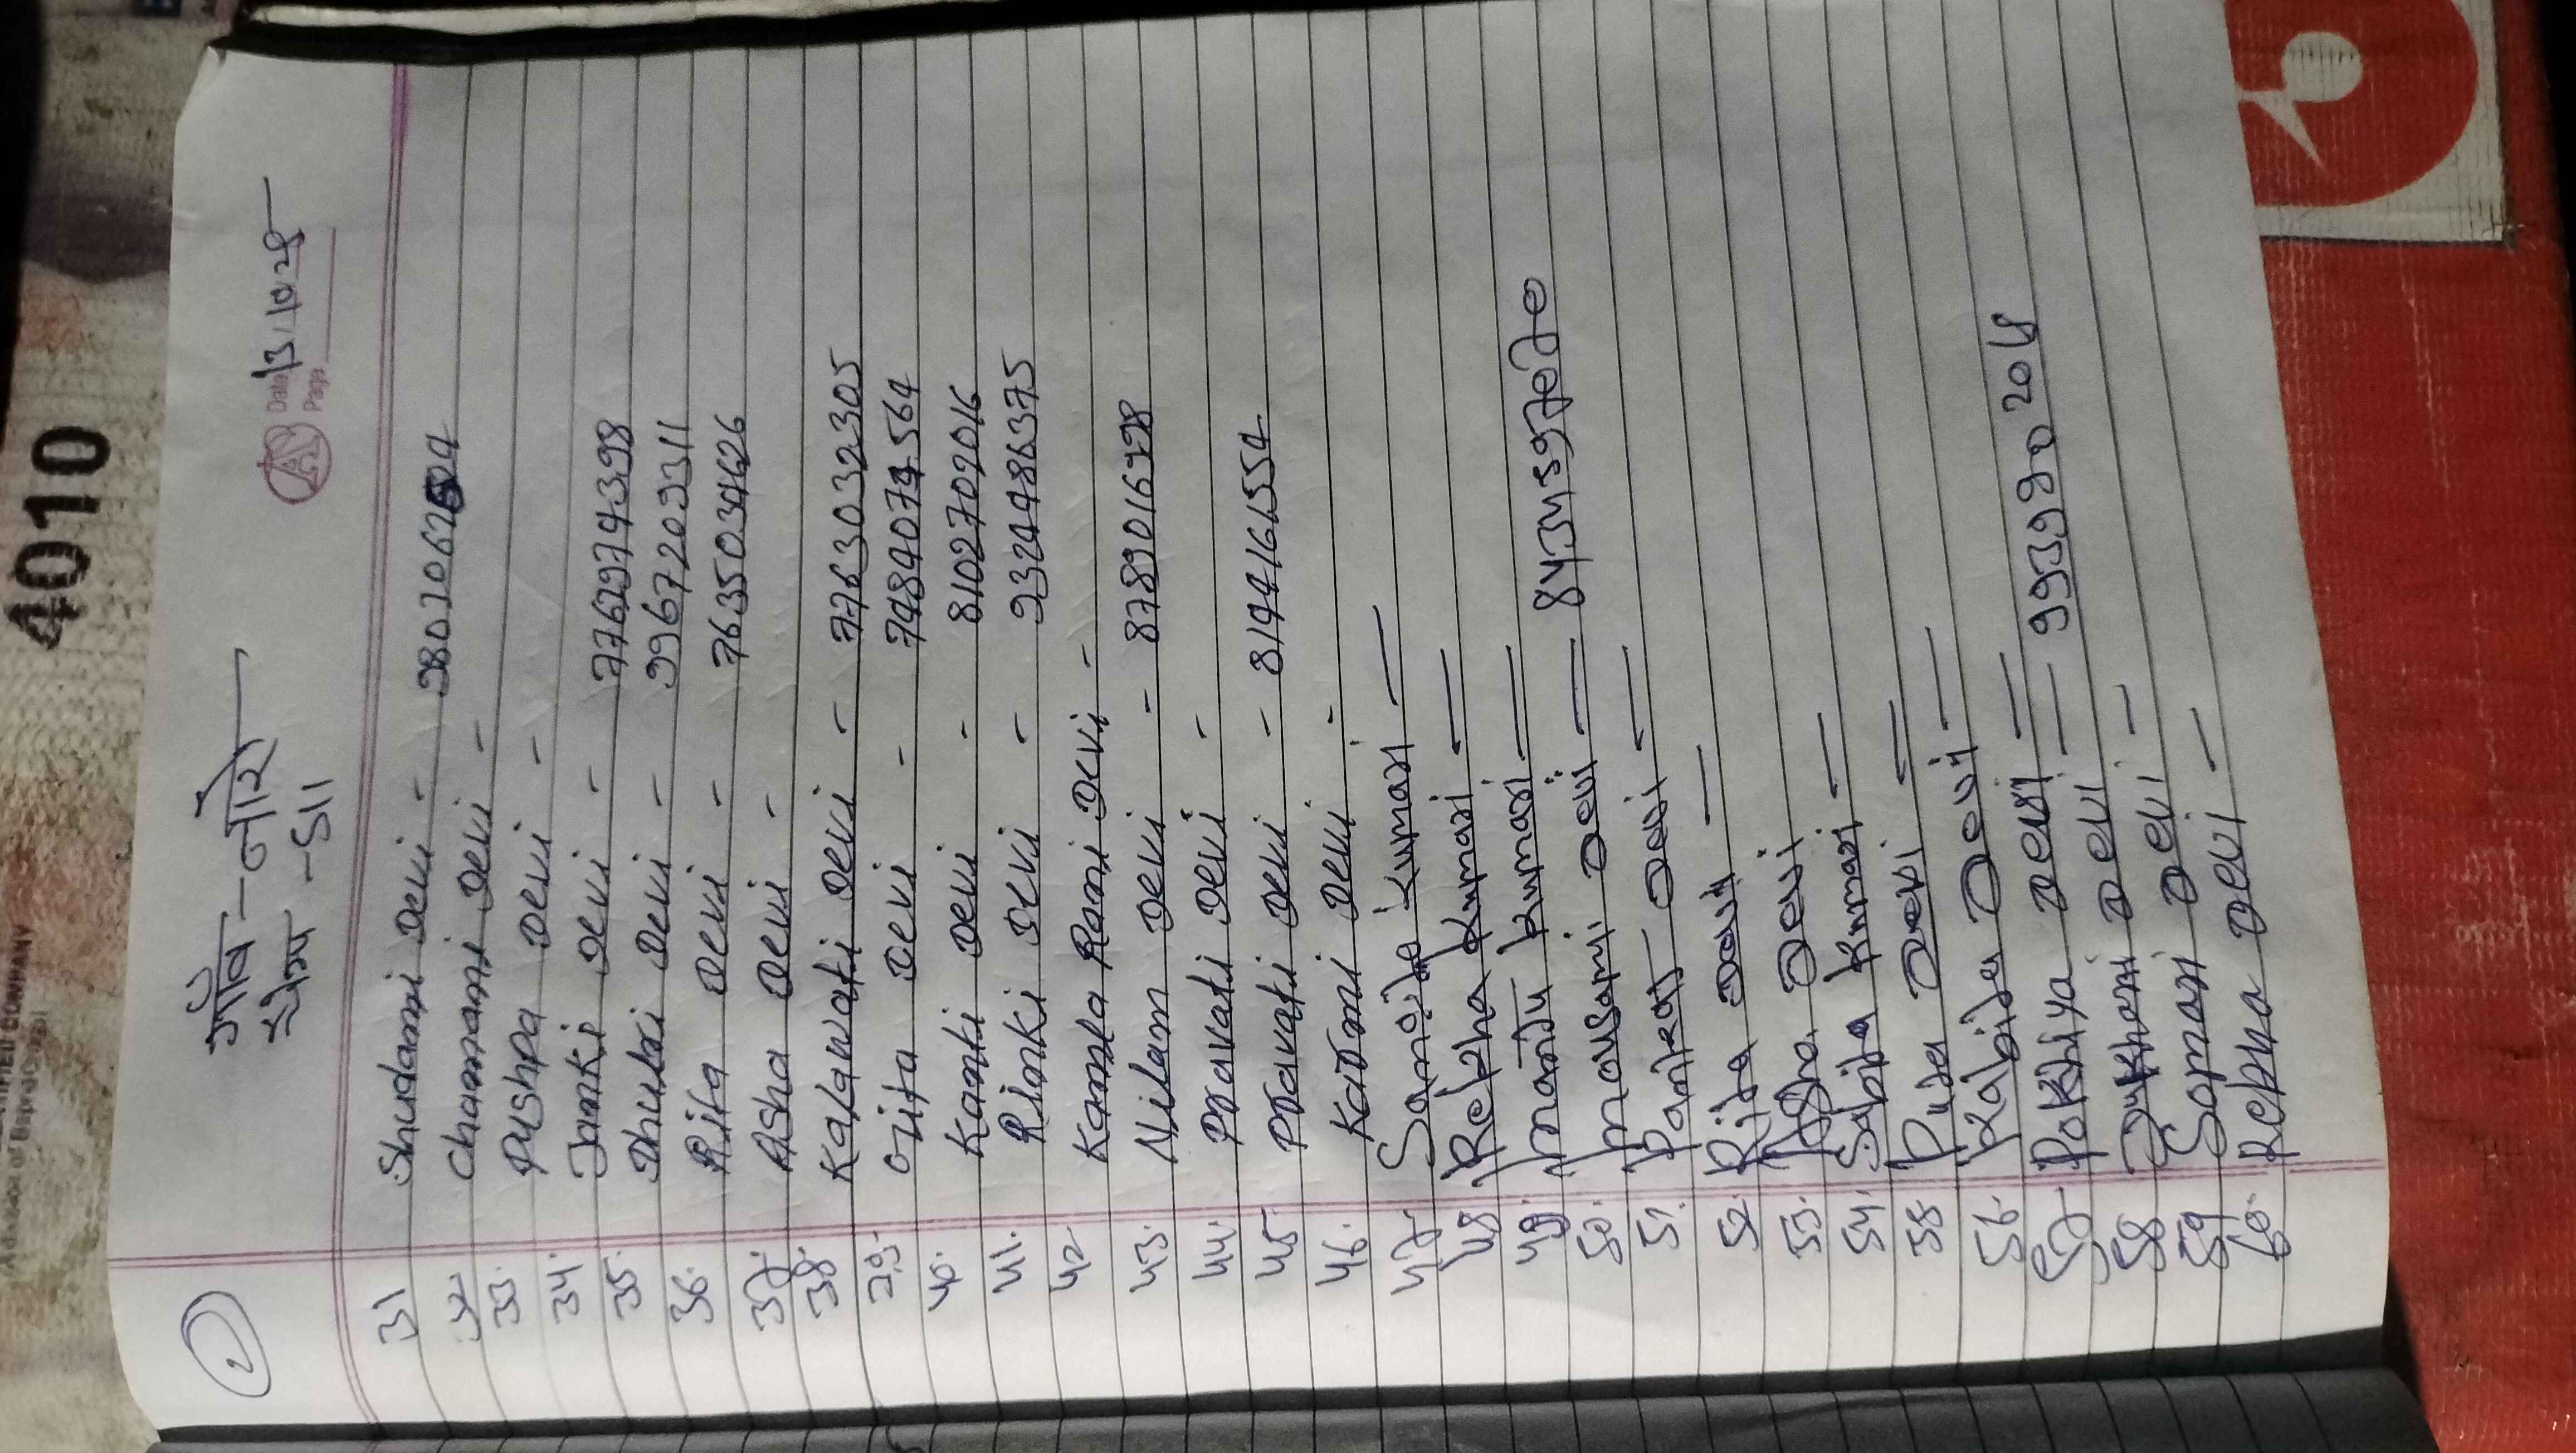 2
गाँव - नारे
Date 13.10.25
Page
31 Shudami Devi -
32 Chammani Devi -
33. Pushpa Devi -
34. Janki Devi - 7762974398
35. Dhulki Devi - 9967209311
36. Rita Devi - 7635034626
37. Asha Devi -
38. Kalawati Devi - 7763032305
39. Gita Devi - 7484074564
40. Kanki Devi - 8102709016
41. Rinki Devi - 9324486375
42 Kamla Rani Devi -
43. Nilam Devi - 8789016998
44. Pravati Devi -
45. Pravati Devi - 8194461554
46. Kaurmi Devi -
47. Kumari —
48 Rekha Kumari —
49. Manju Kumari —
50. Mousami Devi — 8434597070
51. Devi —
52. Rita Devi —
53. Asha Devi
54. Sabita Kumari —
55 Puja Devi —
56. Rabita Devi —
57 Pokhiya Devi — 9939902018
58 Dukheni Devi —
59 Somari Devi —
60. Rekha Devi —
4010